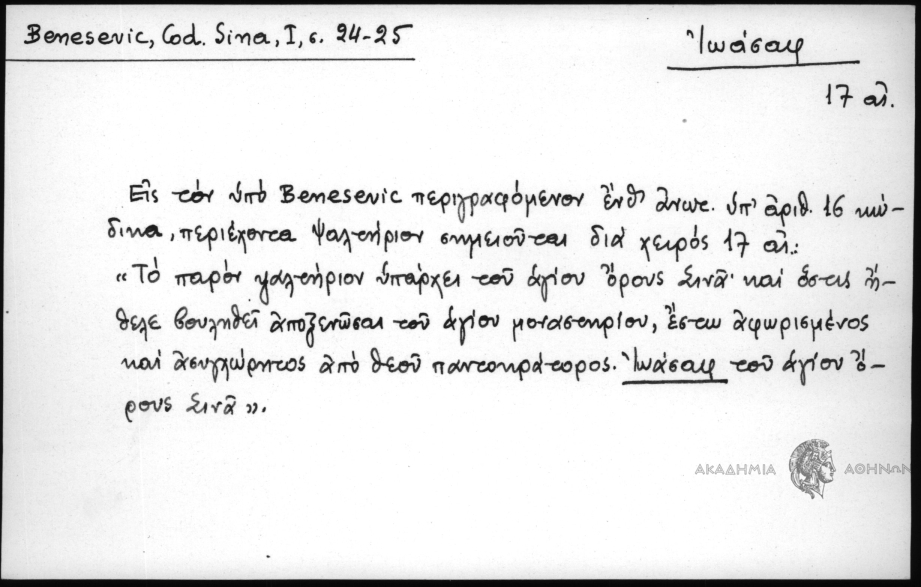 Benesevic, Cod. Sina, I, σ. 24-25
Ἰωάσαφ
17 αἰ.
Εἰς τὸν ὑπὸ Benesevic περιγραφόμενον ἔνθ' ἀνωτ. ὑπ' ἀριθ. 16 κώ-
δικα, περιέχοντα ψαλτήριον σημειοῦται διὰ χειρός 17 αἰ.:
«Τὸ παρὸν ψαλτήριον ὑπάρχει τοῦ ἁγίου Ὄρους Σινᾶ· καὶ ὅστις ἤ-
θελε βουληθεῖ ἀποξενῶσαι τοῦ ἁγίου μοναστηρίου, ἔστω ἀφωρισμένος
καὶ ἀσυγχώρητος ἀπὸ θεοῦ παντοκράτορος. Ἰωάσαφ τοῦ ἁγίου ὄ-
ρους Σινᾶ».
ΑΚΑΔΗΜΙΑ ΑΘΗΝΩΝ